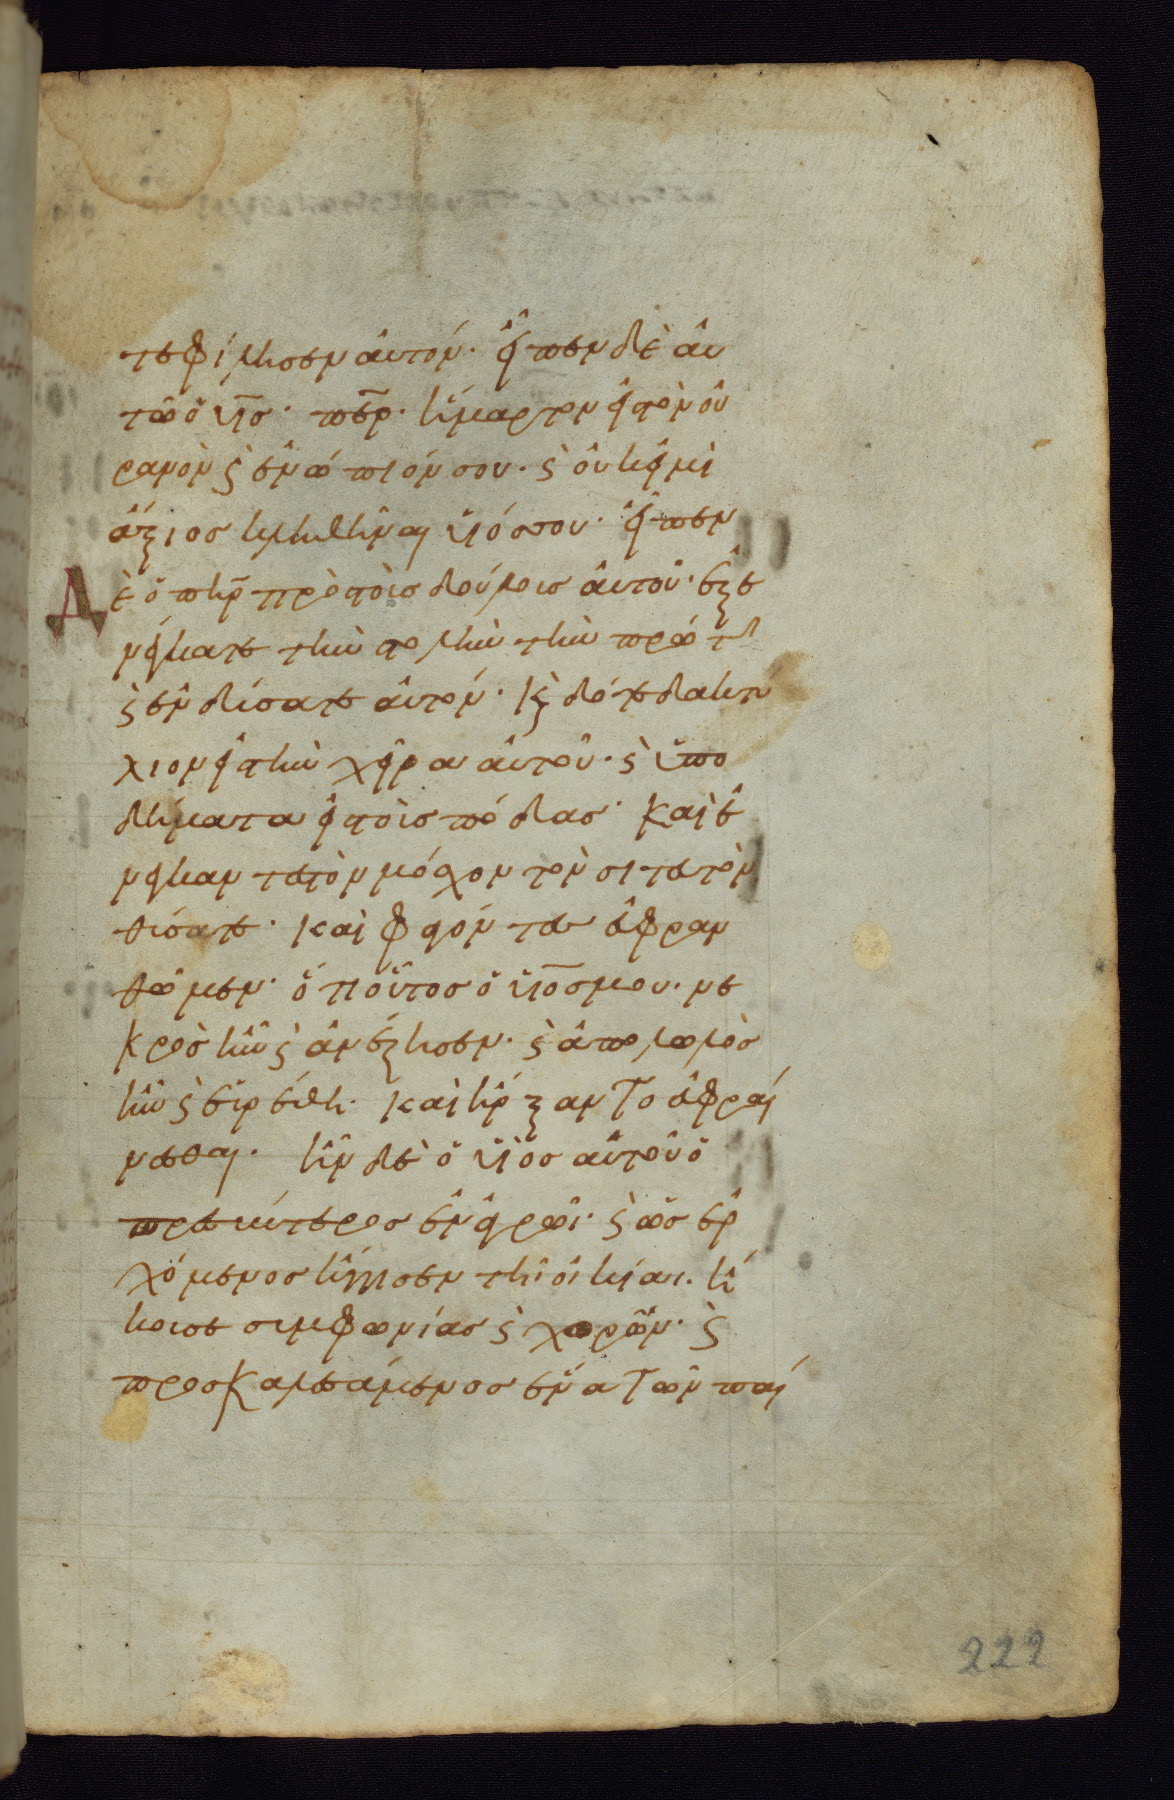 τεφίλησεν αὐτόν. εἶπεν δὲ αὐ
τῶ ὁ υἱ̅σ. πε̅ρ. ἥμαρτον εἰς τὸν οὐ
ρανὸν ϛ ἐνώπιόν σου. ϛ οὐκεῖμι
ἄξιοσ κληθῆναι υἱόσ σου. εἶπεν
Δὲ ὁ πη̅ρ πρὸς τοὺσ δούλουσ αὐτοῦ. ἐξε
νέγκατε τὴν στολὴν τὴν πρώτην
ϛ ἐνδύσατε αὐτόν. κ δότε δακτύ
λιον εἰς τὴν χεῖρα αὐτοῦ. ϛ ὑπο
δήματα εἰς τοὺσ πόδασ. Καὶ ἐ
νέγκαντες τὸν μόσχον τὸν σιτευτὸν
θύσατε. καὶ φαγόντες εὐφραν
θῶμεν. ὅτι οὗτοσ ὁ υἱό̅σ μου. νε
κρὸσ ἦν ϛ ἀνέζησεν. ϛ ἀπολωλὸσ
ἦν ϛ εὑρέθη. καὶ ἤρξαντο εὐφραί
νεσθαι. ἦν δὲ ὁ υἱὸσ αὐτοῦ ὁ
πρεσβύτεροσ ἐν ἀγρῶι. ϛ ὡσ ἐρ
χόμενοσ ἤγγισεν τῆ οἰκίαι. ἤ
κουσε συμφωνίασ ϛ χορῶν. ϛ
προσκαλεσάμενοσ ἕνα τῶν παί
222